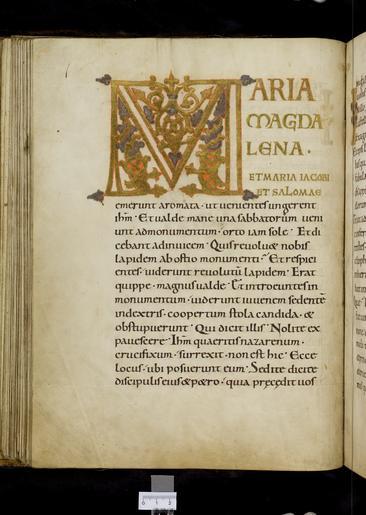 MARIA
MAGDA
LENA.
ET MARIA IACOBI
ET SALOMAE
emerunt aromata · ut venientes ungerent
ihm̄ · Et valde mane una sabbatorum veni
unt admonumentum · orto iam sole · Et di
cebant adinvicem · Quis revolvæ nobis
lapidem ab ostio monumenti · Et respici
entes · viderunt revolutū lapidem · Erat
quippe · magnus valde · Et introeuntes in
monumentum · viderunt iuvenem sedentē
indextris · coopertum stola candida · &
obstupuerunt · Qui dicit illis · Nolite ex
pavescere · Ihm̄ quaeritis nazarenum ·
crucifixum · surrexit · non est hic · Ecce
locus · ubi posuerunt eum · Sed ite dicite
discipulis eius & p&ro · quia præcedit vos